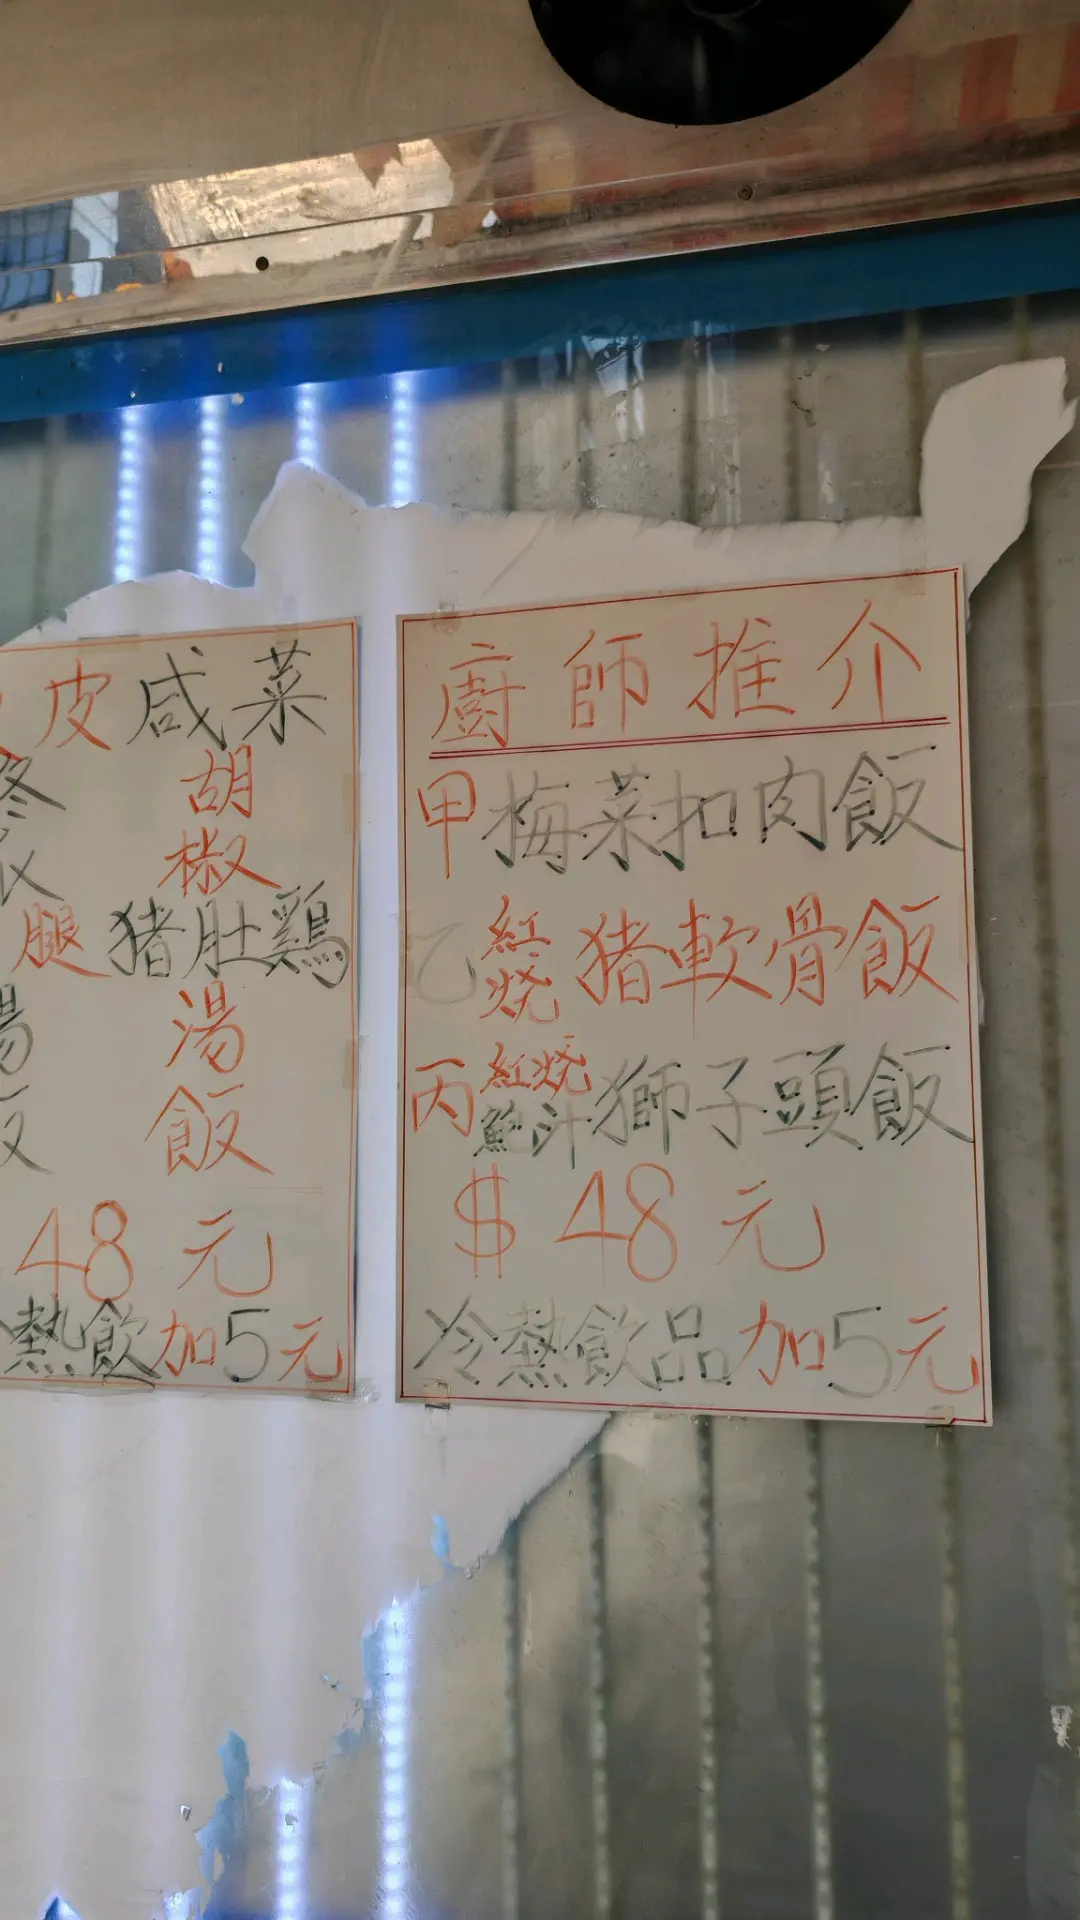 皮
腿
48
咸菜
胡
椒
猪肚鷄
湯
飯
元
熱飲加5元
廚師推介
甲梅菜扣肉飯
乙紅燒猪軟骨飯
丙紅燒鮑汁獅子頭飯
$48元
冷熱飲品加5元